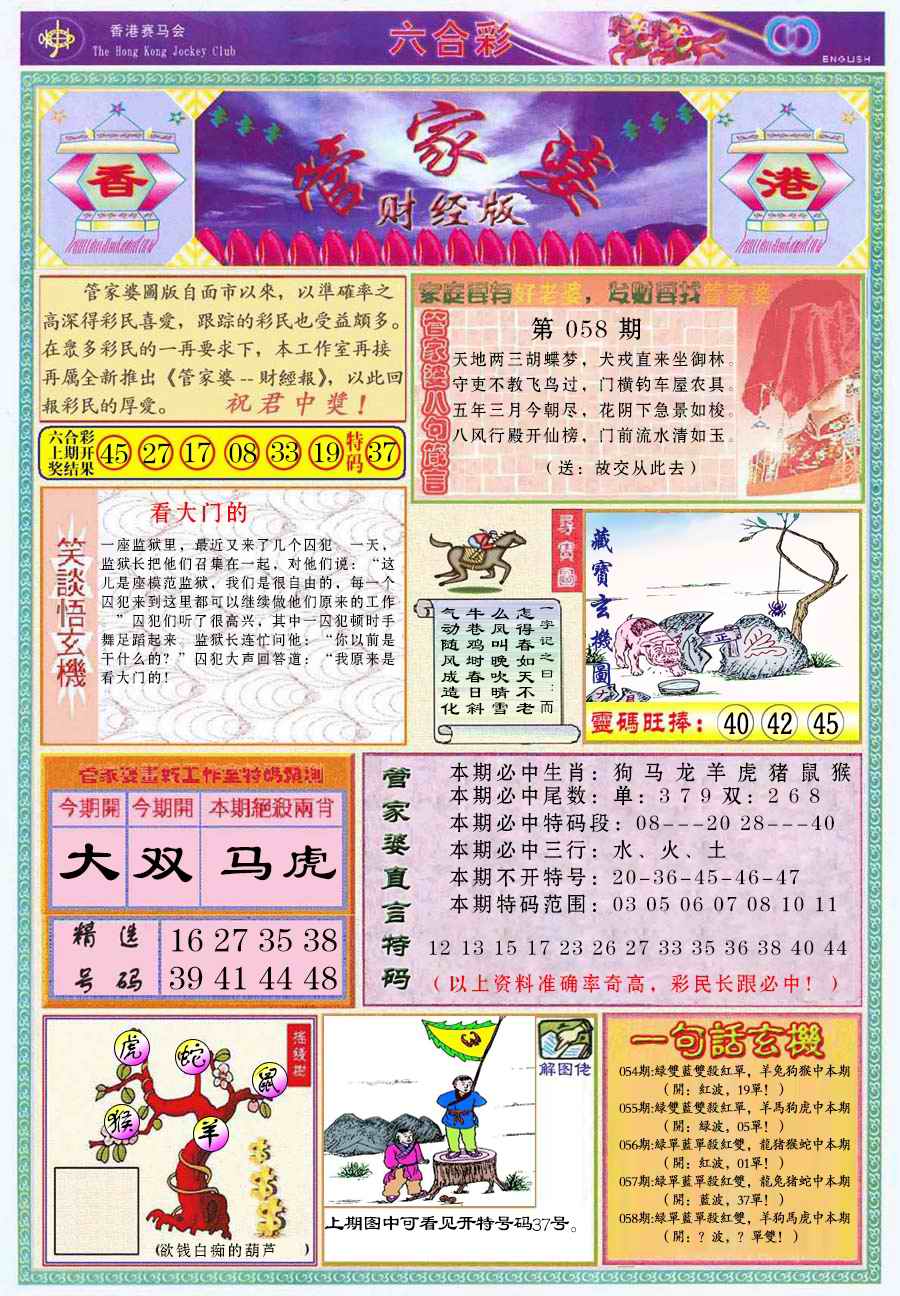 香港赛马会
The Hong Kong Jockey Club
六合彩
ENGLISH
香
管家婆
财经版
港
管家婆圖版自面市以來，以準確率之
高深得彩民喜愛，跟踪的彩民也受益頗多。
在眾多彩民的一再要求下，本工作室再接
再厲全新推出《管家婆--財經報》，以此回
報彩民的厚愛。 祝君中獎！
六合彩
上期开
奖结果
45 27 17 08 33 19 特码 37
家庭要有好老婆，发财要找管家婆
管家婆八句箴言
第 058 期
天地两三胡蝶梦，犬戎直来坐御林。
守吏不教飞鸟过，门横钓车屋农具。
五年三月今朝尽，花阴下急景如梭。
八风行殿开仙榜，门前流水清如玉。
（送：故交从此去）
笑談悟玄機
看大门的
一座监狱里，最近又来了几个囚犯　一天，
监狱长把他们召集在一起，对他们说：“这
儿是座模范监狱，我们是很自由的，每一个
囚犯来到这里都可以继续做他们原来的工作
”囚犯们听了很高兴，其中一囚犯顿时手
舞足蹈起来。监狱长连忙问他：“你以前是
干什么的？”囚犯大声回答道：“我原来是
看大门的！
尋寶圖
一字记之曰：而
怎得春如天不老
么凤叫晚吹晴雪
牛巷鸡埘春日斜
气动随风成造化
藏寶玄機圖
正
靈碼旺捧： 40 42 45
今期開 今期開 本期絕殺兩肖
大 双 马虎
精选
号码
16 27 35 38
39 41 44 48
管家婆直言特码
本期必中生肖：狗马龙羊虎猪鼠猴
本期必中尾数：单：379双：268
本期必中特码段：08---20 28---40
本期必中三行：水、火、土
本期不开特号：20-36-45-46-47
本期特码范围：03 05 06 07 08 10 11
12 13 15 17 23 26 27 33 35 36 38 40 44
（以上资料准确率奇高，彩民长跟必中！）
摇钱樹
虎
蛇
鼠
猴
羊
(欲钱白痴的葫芦　)
解图佬
上期图中可看见开特号码37号。
一句話玄機
054期:緑雙藍雙殺紅單，羊兔狗猴中本期
（開：紅波，19單！）
055期:緑雙藍雙殺紅單，羊馬狗虎中本期
（開：緑波，05單！）
056期:緑單藍單殺紅雙，龍猪猴蛇中本期
（開：紅波，01單！）
057期:緑單藍單殺紅雙，龍兔猪蛇中本期
（開：藍波，37單！）
058期:緑單藍單殺紅雙，羊狗馬虎中本期
（開：？波，？單雙！）